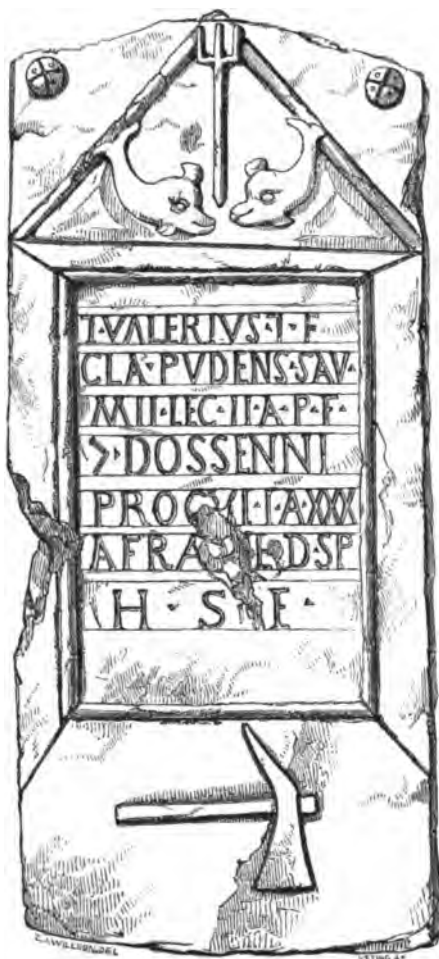 T·VALERIVS·T·F
CLA·PVDENS·SAV·
MIL·LEC·II·A·P·F·
DOSSENNI
PROCVLI·A·XXX
AFRA D·SP
H·S·E·